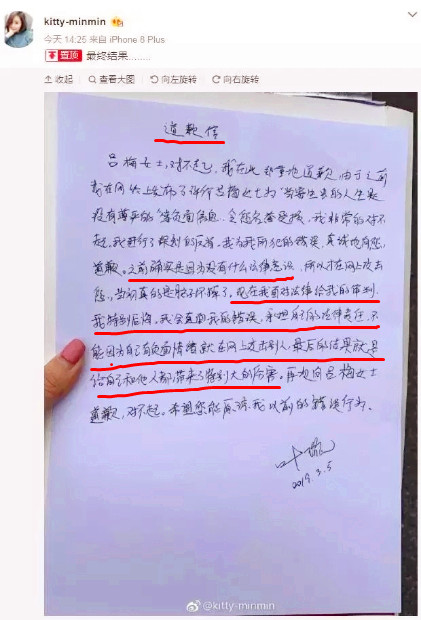 kitty-minmin
今天 14:25 来自 iPhone 8 Plus
置顶 最终结果........
收起 查看大图 向左旋转 向右旋转
道歉信
吕梅女士,对不起,我在此郑重地道歉,由于之前
我在网上发布了评价吕梅女士为“当寄生去的人生是
没有尊严的”等负面信息,令您名誉受损,我非常的对不
起,我进行了深刻的反省,我为我所犯的错误,真诚地向您
道歉。之前确实是因为没有什么法律意识,所以才在网上攻击
您,当初真的是脑子了。现在我面对法律给我的审判,
我特别后悔,我会直面我的错误,承担自己的法律责任,不
能因为自己有负面情绪就在网上攻击别人,最后的结果就是
给自己和他人都带来了特别大的伤害。再次向吕梅女士
道歉,对不起。希望您能原谅我以前的错误行为。
叶璇
2019.3.5
@kitty-minmin